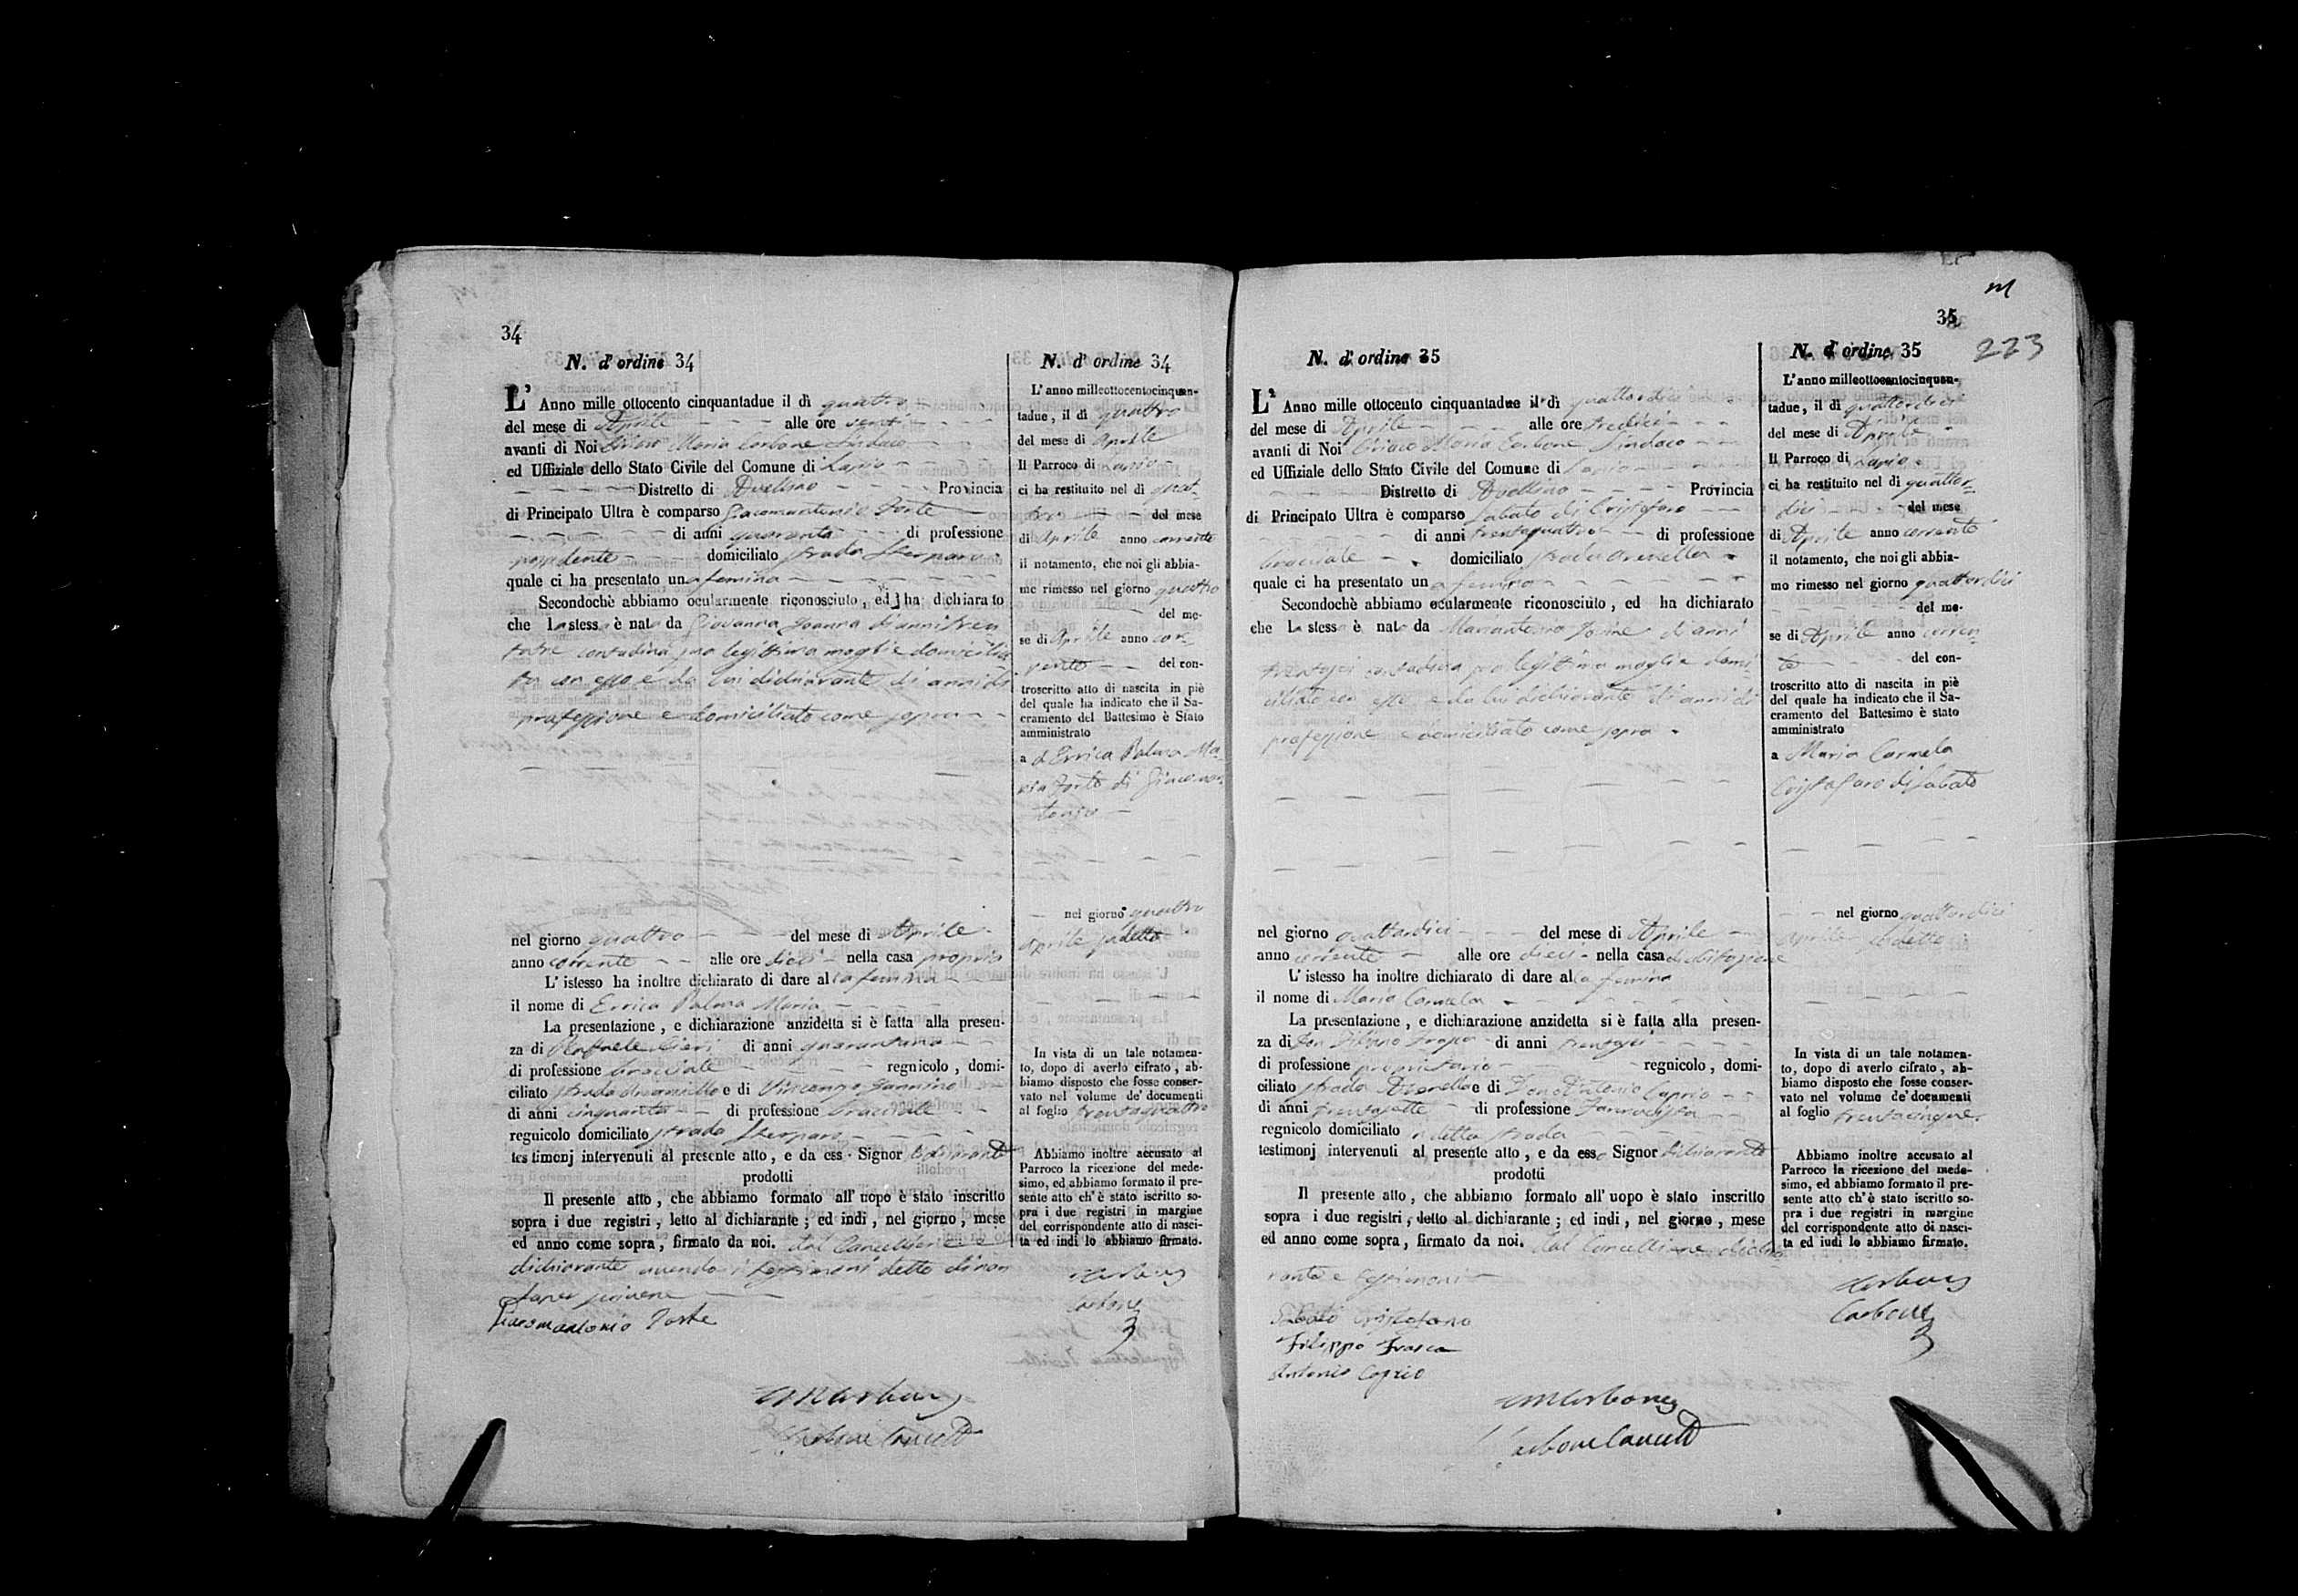 34
N. d' ordine 34
L' Anno mille ottocento cinquantadue il dì quattro
del mese di Aprile alle ore venti
avanti di Noi Ciriaco Maria Carbone Sindaco
ed Uffiziale dello Stato Civile del Comune di Lapio
Distretto di Avellino Provincia
di Principato Ultra è comparso Giacomantonio Forte
di anni quaranta di professione
possidente domiciliato strada
quale ci ha presentato una femina
Secondochè abbiamo ocularmente riconosciuto, ed ha dichiarato
che la stessa è nata da Giovanna di anni tren
tatre contadina sua legittima moglie domicilia
ta con esso e da lui dichiarante di anni di
professione e domiciliato come sopra
nel giorno quattro del mese di Aprile
anno corrente alle ore dieci nella casa propria
L' istesso ha inoltre dichiarato di dare alla femina
il nome di Errica Palma Maria
La presentazione, e dichiarazione anzidetta si è fatta alla presen-
za di Raffaele di anni
di professione bracciale regnicolo, domi-
ciliato strada e di Vincenzo
di anni cinquanta di professione bracciale
regnicolo domiciliato strada
testimonj intervenuti al presente atto, e da ess Signor dichiarante
prodotti
Il presente atto, che abbiamo formato all' uopo è stato inscritto
sopra i due registri, letto al dichiarante; ed indi, nel giorno, mese
ed anno come sopra, firmato da noi. dal Cancelliere e
dichiarante avendo i testimoni detto di non
saper scrivere
Giacomantonio Forte
Carbone Cancell
N. d' ordine 34
L' anno milleottocentocinquan-
tadue, il dì quattro
del mese di Aprile
Il Parroco di Lapio
ci ha restituito nel dì quat-
tro del mese
di Aprile anno corrente
il notamento, che noi gli abbia-
mo rimesso nel giorno quattro
del me-
se di Aprile anno cor-
rente del con-
troscritto atto di nascita in piè
del quale ha indicato che il Sa-
cramento del Battesimo è Stato
amministrato
a d Errica Palma Ma-
ria Forte di Giacoman
tonio
nel giorno quattro
Aprile sudetto
In vista di un tale notamen-
to, dopo di averlo cifrato, ab-
biamo disposto che fosse conser-
vato nel volume de' documenti
al foglio trentaquattro
Abbiamo inoltre accusato al
Parroco la ricezione del mede-
simo, ed abbiamo formato il pre-
sente atto ch' è stato iscritto so-
pra i due registri in margine
del corrispondente atto di nasci-
ta ed indi lo abbiamo firmato.
Carbone
35
223
N. d' ordine 35
L' Anno mille ottocento cinquantadue il dì quattordici
del mese di Aprile alle ore tredici
avanti di Noi Ciriaco Maria Carbone Sindaco
ed Uffiziale dello Stato Civile del Comune di Lapio
Distretto di Avellino Provincia
di Principato Ultra è comparso Sabato di Cristofaro
di anni trentaquattro di professione
bracciale domiciliato strada
quale ci ha presentato una femina
Secondochè abbiamo ocularmente riconosciuto, ed ha dichiarato
che la stessa è nata da Mariantonia di anni
trentasei contadina sua legittima moglie domi
ciliata con esso e da lui dichiarante di anni di
professione e domiciliato come sopra
nel giorno quattordici del mese di Aprile
anno corrente alle ore dieci nella casa di abitazione
L' istesso ha inoltre dichiarato di dare alla femina
il nome di Maria Carmela
La presentazione, e dichiarazione anzidetta si è fatta alla presen-
za di Don di anni trentasei
di professione proprietario regnicolo, domi-
ciliato strada e di Don Antonio Caprio
di anni trentasette di professione
regnicolo domiciliato detta strada
testimonj intervenuti al presente atto, e da esso Signor dichiarante
prodotti
Il presente atto, che abbiamo formato all' uopo è stato inscritto
sopra i due registri, letto al dichiarante; ed indi, nel giorno, mese
ed anno come sopra, firmato da noi. dal Cancelliere dichia
rante e testimoni
Sabato Cristofano
Filippo Frasca
Antonio Caprio
Carbone Cancell
N. d' ordine 35
L' anno milleottocentocinquan-
tadue, il dì quattordici
del mese di Aprile
Il Parroco di Lapio
ci ha restituito nel dì quattor-
dici del mese
di Aprile anno corrente
il notamento, che noi gli abbia-
mo rimesso nel giorno quattordici
del me-
se di Aprile anno corren-
te del con-
troscritto atto di nascita in piè
del quale ha indicato che il Sa-
cramento del Battesimo è stato
amministrato
a Maria Carmela
Cristofaro di Sabato
nel giorno quattordici
Aprile sudetto
In vista di un tale notamen-
to, dopo di averlo cifrato, ab-
biamo disposto che fosse conser-
vato nel volume de' documenti
al foglio trentacinque
Abbiamo inoltre accusato al
Parroco la ricezione del mede-
simo, ed abbiamo formato il pre-
sente atto ch' è stato iscritto so-
pra i due registri in margine
del corrispondente atto di nasci-
ta ed indi lo abbiamo firmato.
Carbone